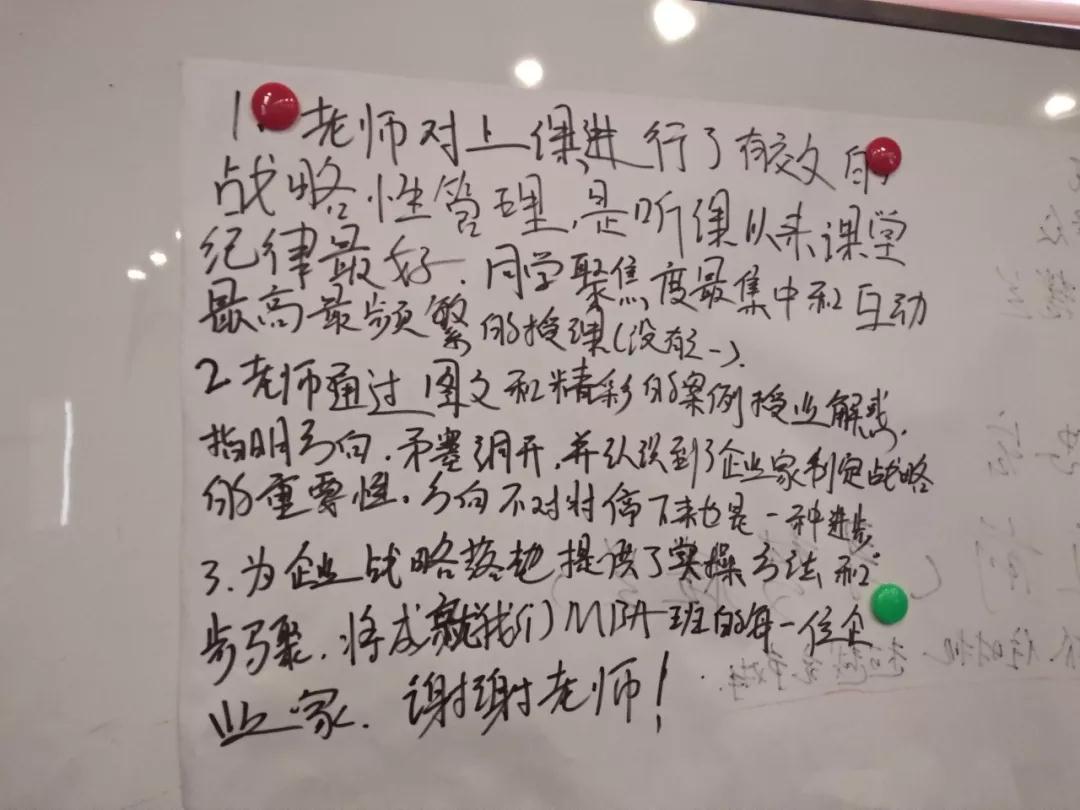 1. 老师对上课进行了有效的
战略性管理,是听课以来课堂
纪律最好.同学聚焦度最集中和互动
最高最频繁的授课(没有之一).
2 老师通过图文和精彩的案例授业解惑,
指明方向.茅塞洞开,并认识到了企业家制定战略
的重要性.方向不对时停下来也是一种进步.
3.为企业战略落地提供了实操方法和
步骤.将成就我们MBA班的每一位企
业家.谢谢老师!